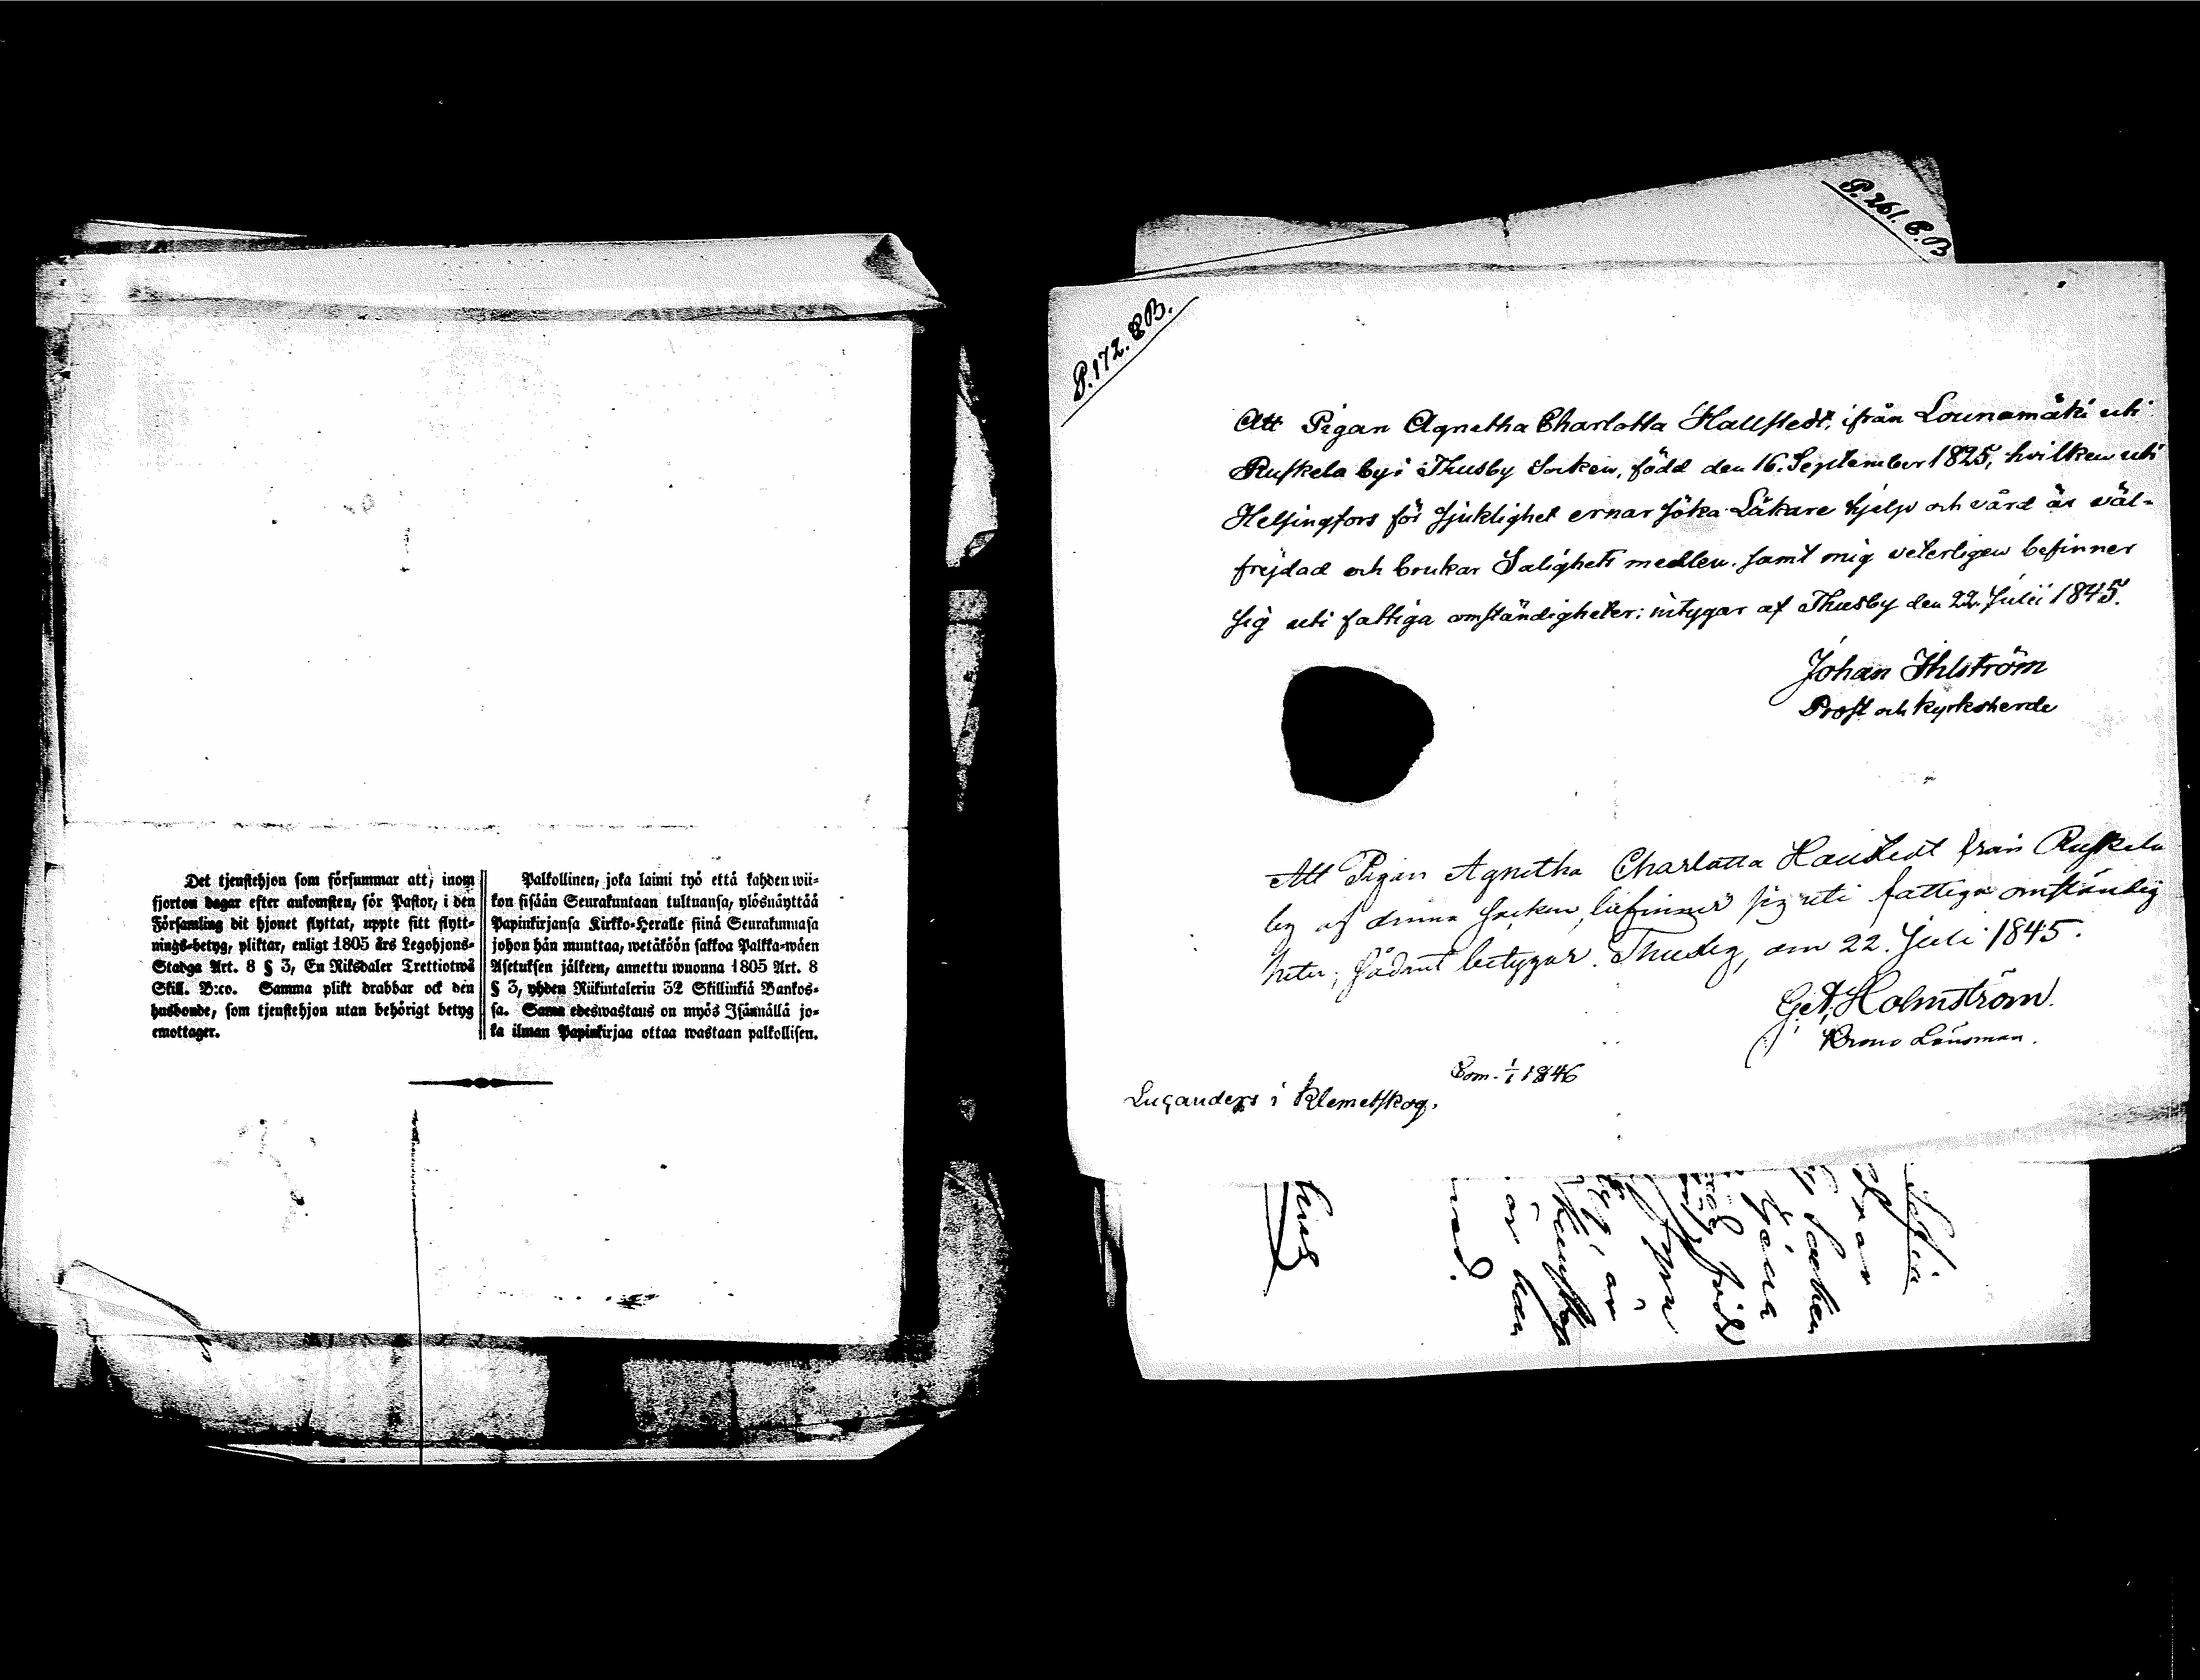 Det tjenstehjon som försummar att, inom
fjorton dagar efter ankomsten, för Pastor, i den
Församling dit hjonet flyttat, uppte sitt flytt-
nings-betyg, pliktar, enligt 1805 års Legohjons-
Stadga Art. 8 § 3, En Riksdaler Trettiotwå
Skill. B:co. Samma plikt drabbar ock den
husbonde, som tjenstehjon utan behörigt betyg
emottager.
Palkollinen, joka laimi työ että kahden wii-
kon sisään Seurakuntaan tultuansa, ylösnäyttää
Papinkirjansa Kirkko-Heralle siinä Seurakunnasa
johon hän munttaa, wetäköön sakkoa Palkka-wäen
Asetuksen jälkeen, annettu wuonna 1805 Art. 8
§ 3, yhden Riikintalerin 32 Skillinkiä Bankos-
sa. Sama edeswastaus on myös Isännällä jo-
ka ilman Papinkirjaa ottaa wastaan palkollisen.
P. 261. C.B
P. 172. C.B.
Att Pigan Agnetha Charlotta Hallstedt, ifrån Lounamäki uti
Ruskela by i Thusby Socken, född den 16. September 1825, hvilken uti
Helsingfors för sjuklighet ernar söka Läkare hjelp och vård är väl-
frejdad och brukar Salighets medlen, samt mig veterligen befinner
sig uti fattiga omständigheter; intygar af Thusby den 22. Julii 1845.
Johan Ihlström
Prost och kyrkoherde
Att Pigan Agnetha Charlotta Hallstedt från Ruskela
by af denna socken, befinner sig uti fattiga omständig
heter; sådant betygar. Thusby, om 22. Juli 1845.
Holmström.
Krono Länsman.
Com. 1/1 1846
Luganders i Klemetskog.